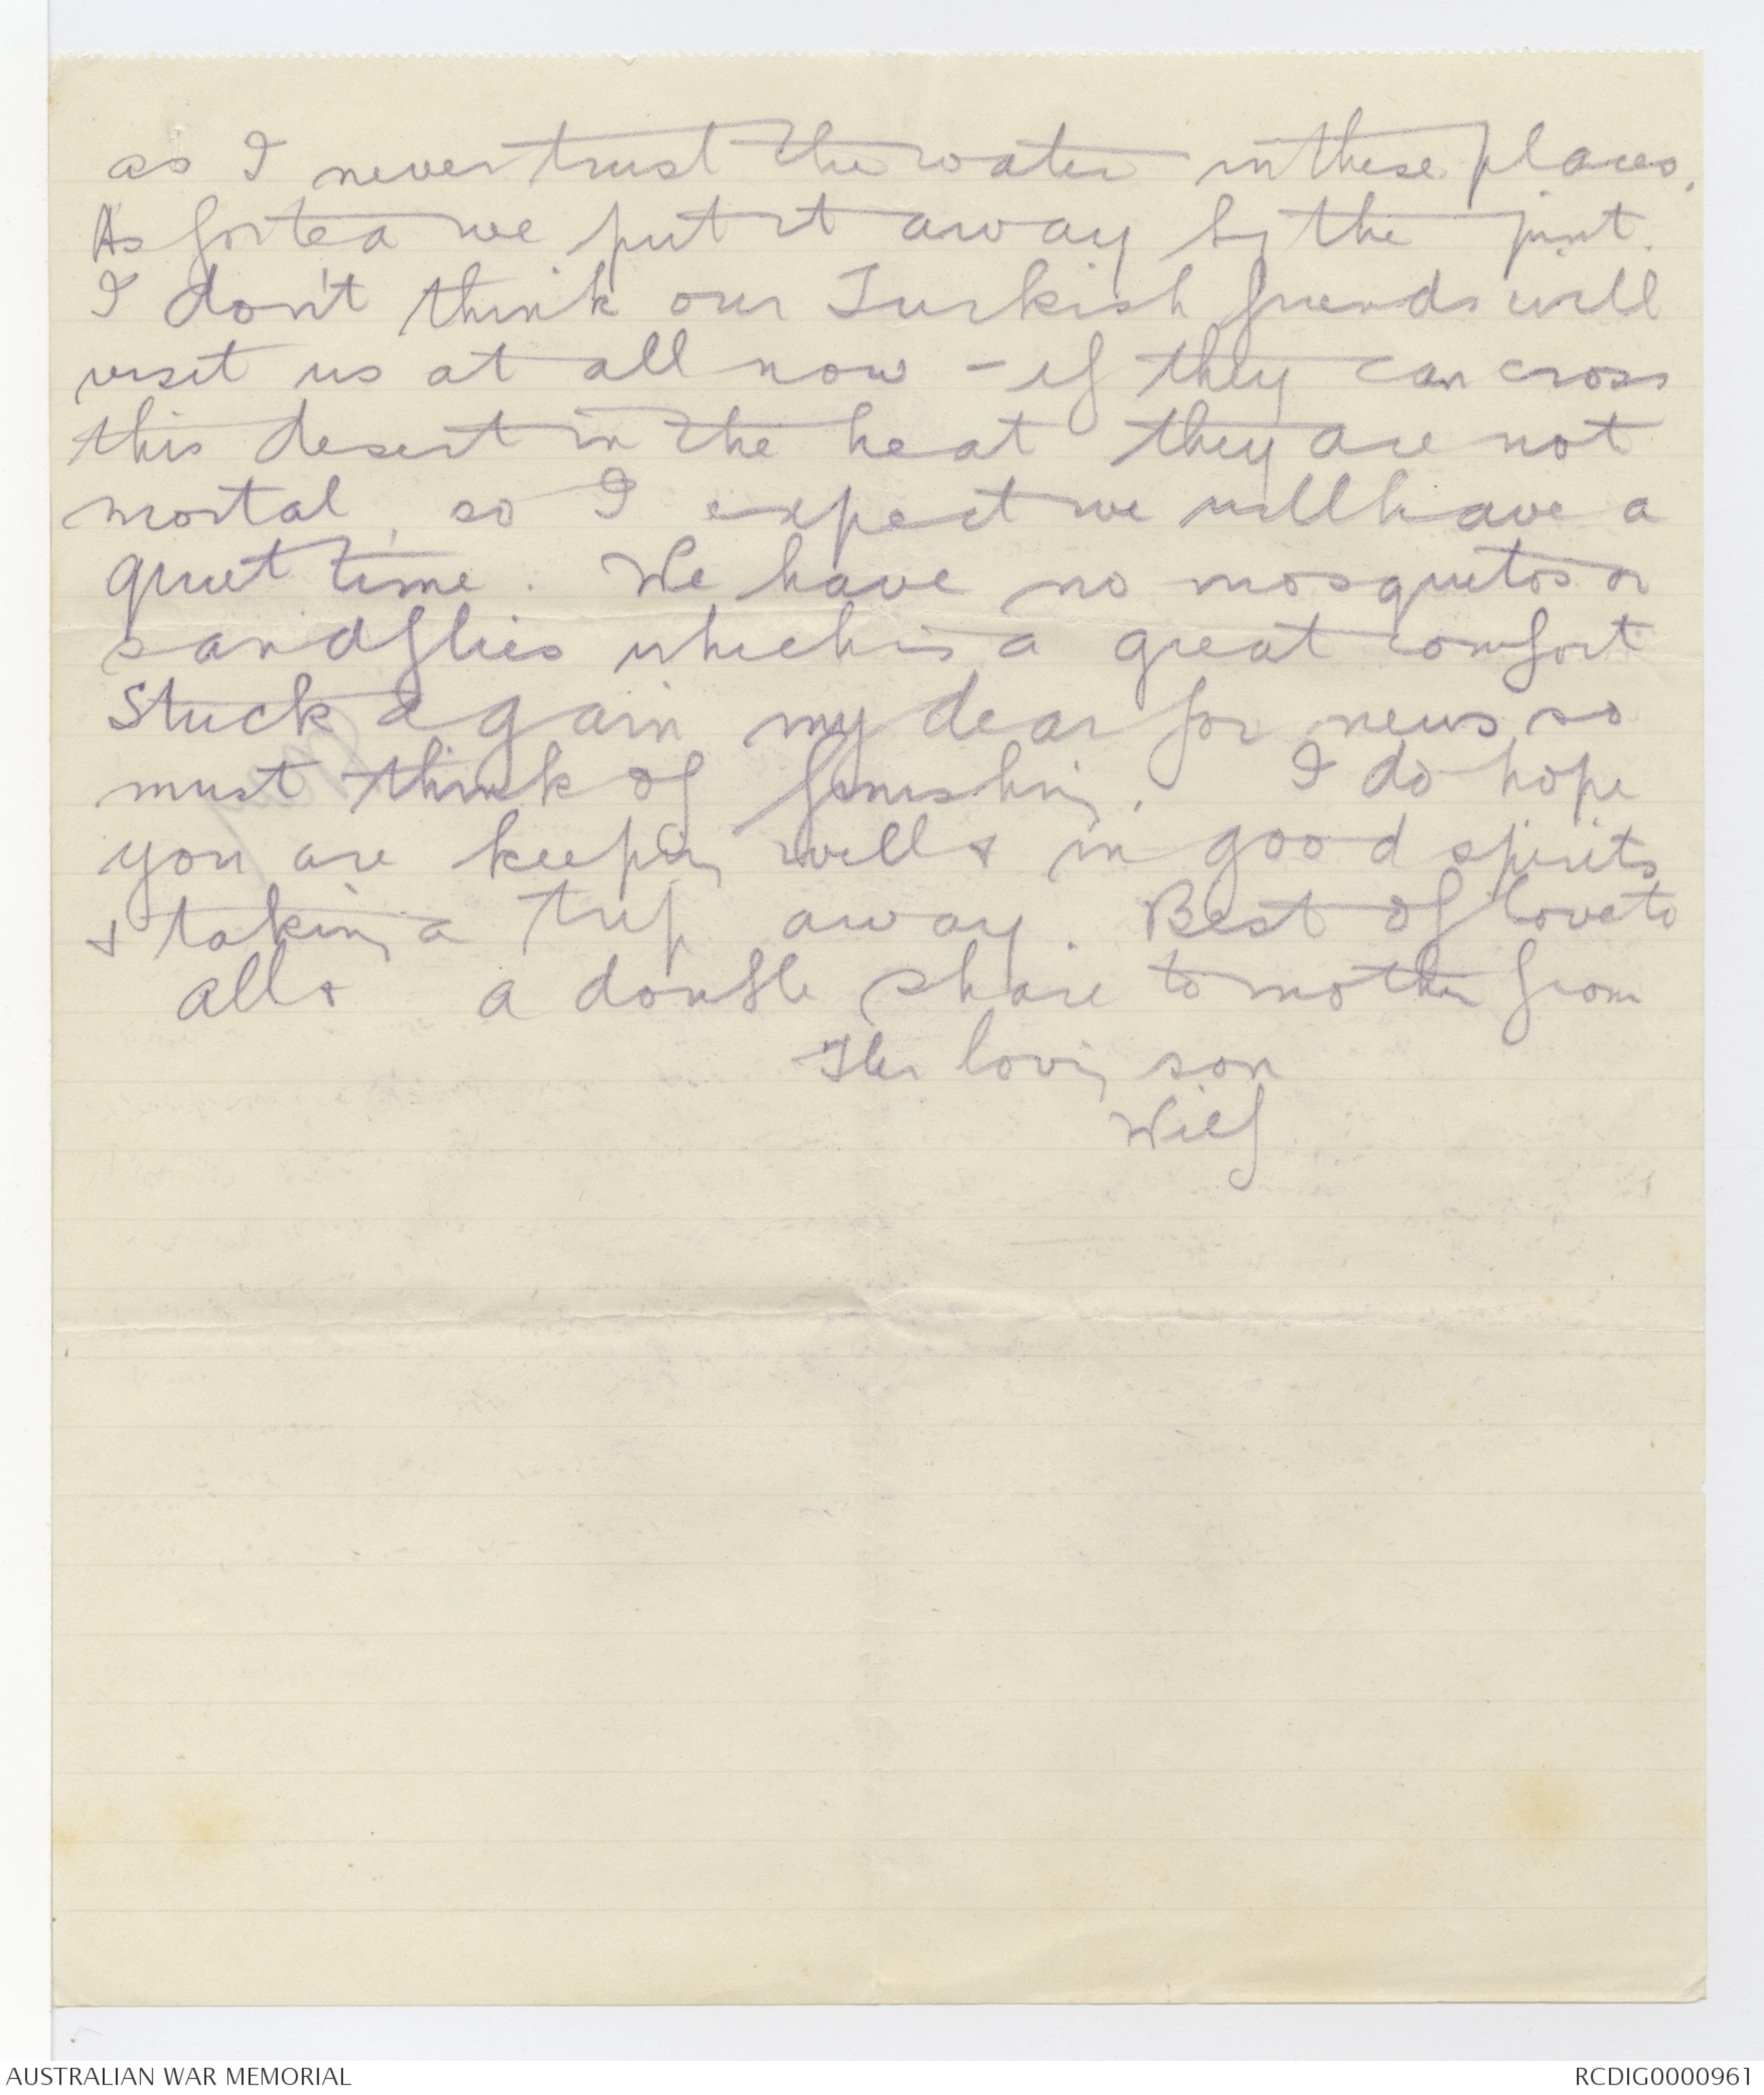 as I never trust the water in these places.
As for tea we put it away by the pint.
I don't think our Turkish friends will
visit us at all now - if they can cross
this desert in the heat they are not
mortal, so I expect we will have a
quiet time. We have no mosquitos or
sandflies which is a great comfort
Stuck again my dear for news so
must think of finishing. I do hope
you are keeping well & in good spirits
& taking a trip away. Best of love to
all & a double share to mother from
Her loving son
Wilf
AUSTRALIAN WAR MEMORIAL
RCDIG0000961